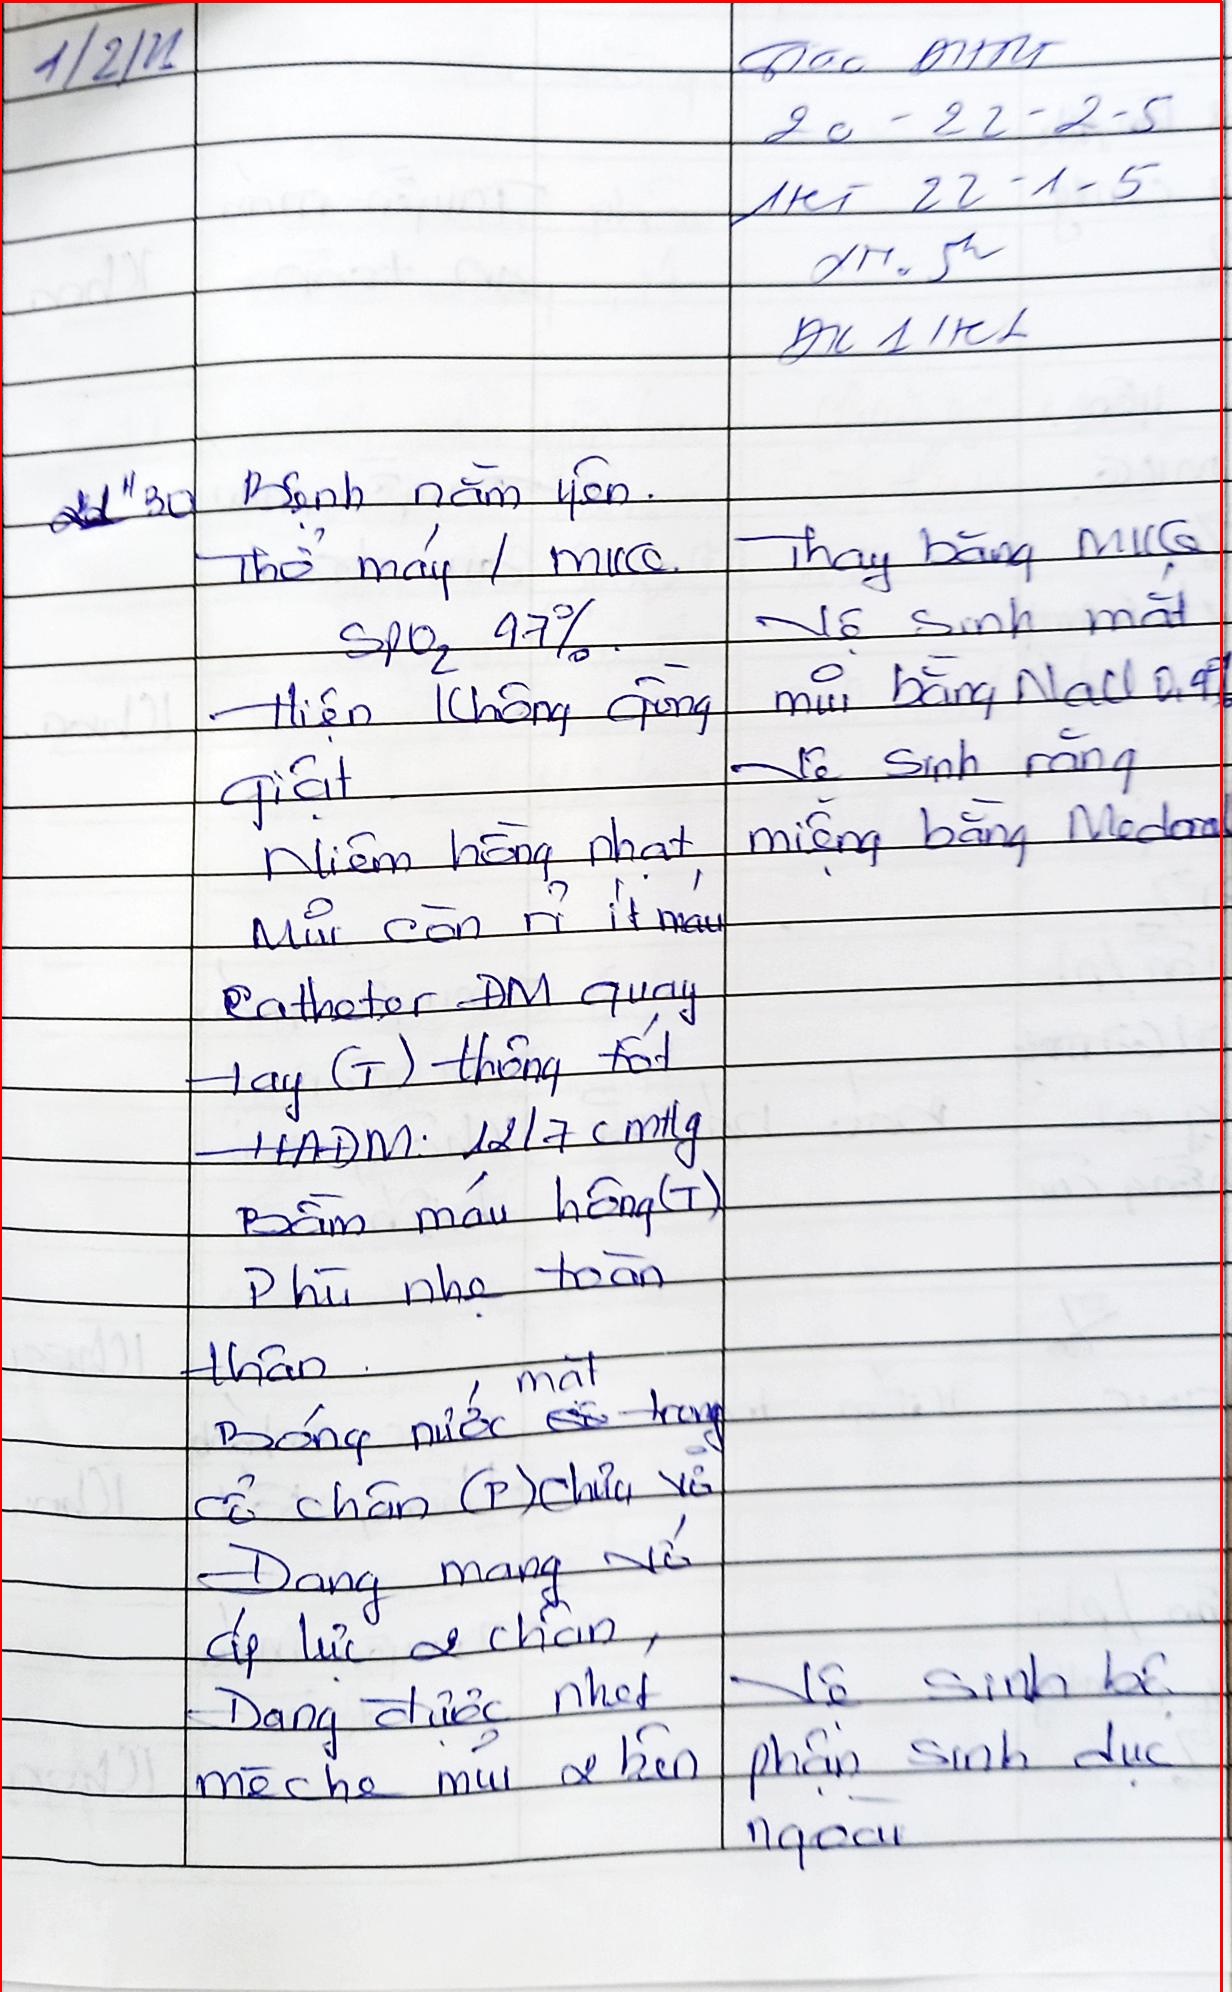 1/2/21
20 - 22 - 2 - 5
22 - 1 - 5
30
Bệnh nằm yên.
Thở máy / MKQ.
SpO2 97%.
- Hiện không gồng
giật
Niêm hồng nhạt
Mũi còn rỉ ít máu
Catheter ĐM quay
tay (T) thông tốt
- HAĐM: 12/7 cmHg
Bầm máu hông (T)
Phù nhẹ toàn
thân.
mặt
Bóng nước trong
cổ chân (P) chưa vỡ
- Đang mang vớ
áp lực 2 chân,
- Đang được nhét
mèche mũi 2 bên
- Thay băng MKQ
- Vệ sinh mắt
mũi bằng NaCl 0,9%
- Vệ sinh răng
miệng bằng Medoral
- Vệ sinh bộ
phận sinh dục
ngoài